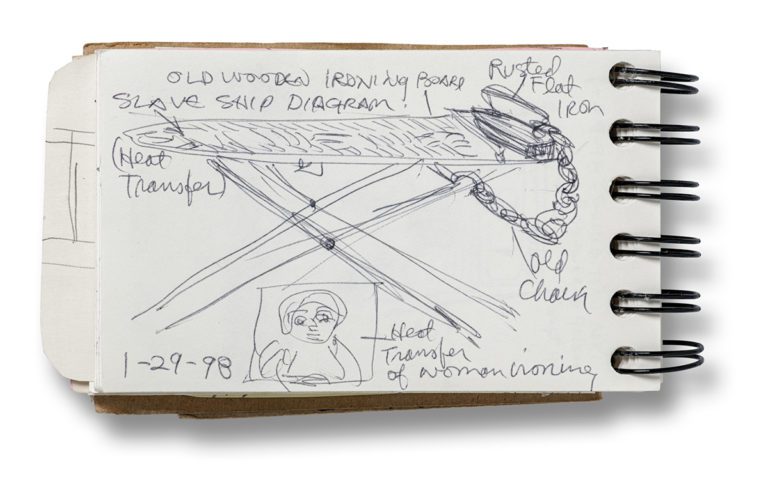 OLD WOODEN IRONING BOARD
SLAVE SHIP DIAGRAM
(Heat
Transfer)
Rusted
Flat
IRON
Old
Chain
1-29-98
Heat
Transfer
of woman ironing